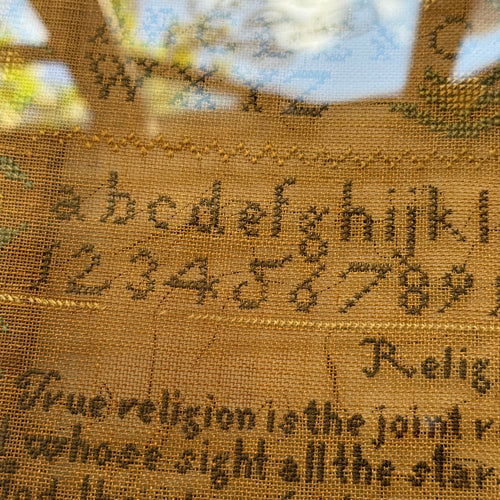 W X Y Z
a b c d e f g h i j k l
1 2 3 4 5 6 7 8 9
Relig
True religion is the joint r
whose sight all the star